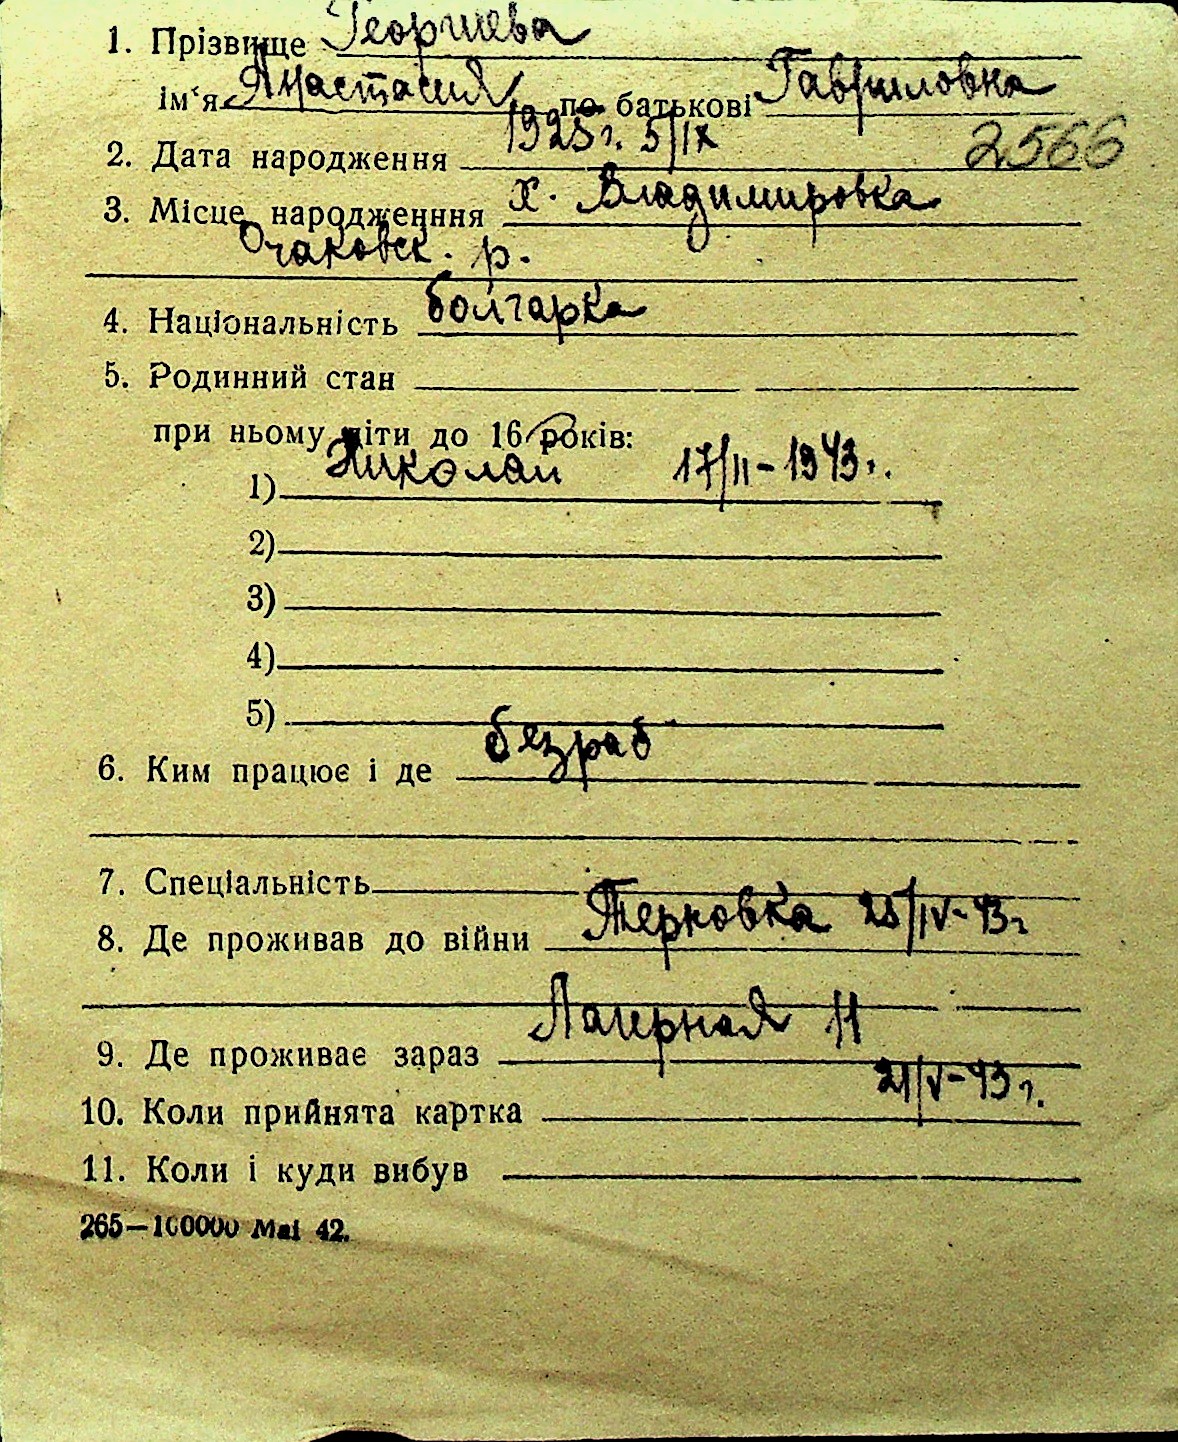 1. Прізвище Георгиева
ім'я Анастасия по батькові Гавриловна
2. Дата народження 1923 г. 5/IX 2566
3. Місце народженння х. Владимировка
Очаковск. р.
4. Національність болгарка
5. Родинний стан
при ньому діти до 16 років:
1) Николай 17/II-1943г.
2)
3)
4)
5)
6. Ким працює і де безраб
7. Спеціальність
8. Де проживав до війни Терновка /IV-43г
9. Де проживає зараз Лагерная 11
10. Коли прийнята картка 21/V-43г.
11. Коли і куди вибув
265—100000 Mai 42.